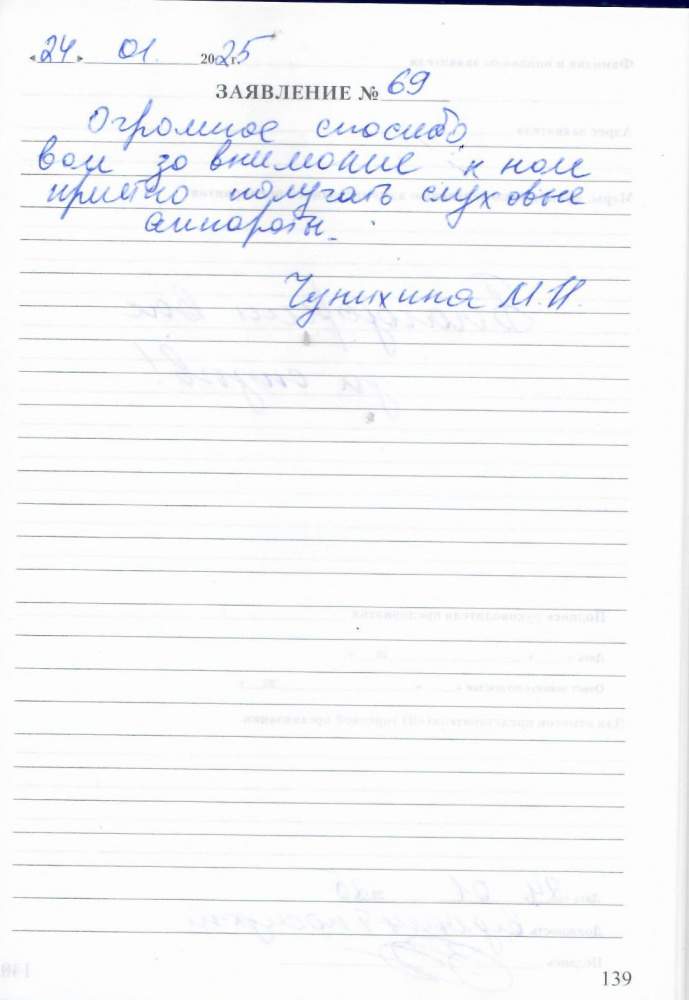 «24» 01. 2025 г.
ЗАЯВЛЕНИЕ № 69
Огромное спасибо,
вам за внимание к нам
приятно получать слуховые
аппараты.
Чунихина М.И.
139